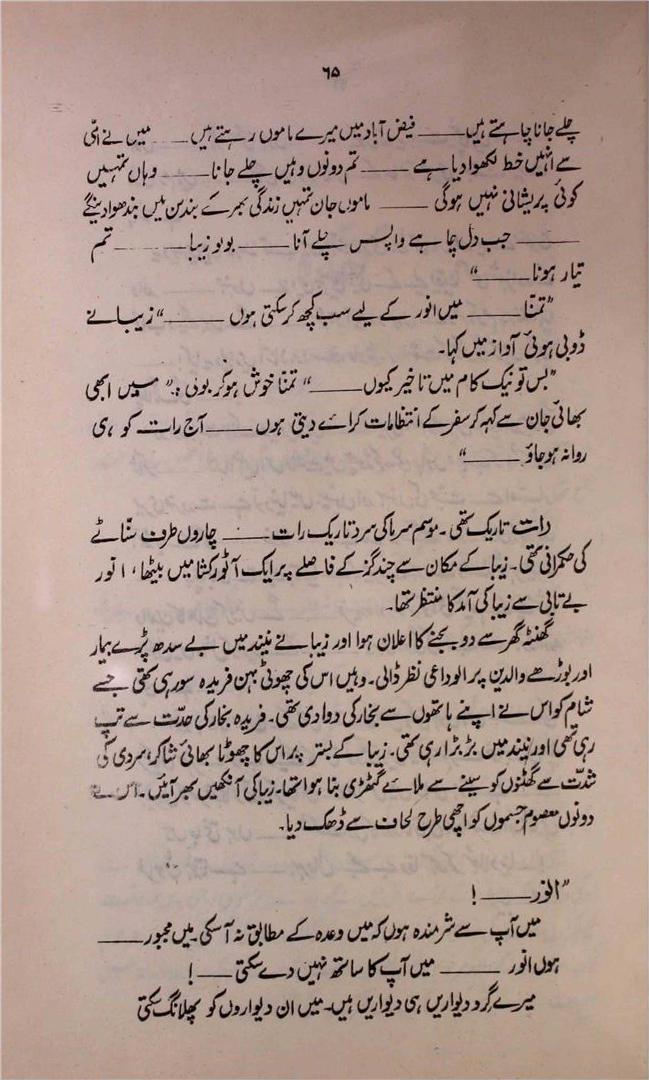 ۶۵
چلے جانا چاہتے ہیں ـــــــ فیض آباد میں میرے ماموں رہتے ہیں ـــــــ میں نے امّی
سے انہیں خط لکھوا دیا ہے ـــــــ تم دونوں وہیں چلے جانا ـــــــ وہاں تمہیں
کوئی پریشانی نہیں ہوگی ـــــــ ماموں جان تمہیں زندگی بھر کے بندھن میں بندھوا دینگے
ـــــــ جب دل چاہے واپس چلے آنا ـــــــ بولو زیبا ـــــــ تم
تیار ہونا ـــــــ"
"تمنّا ـــــــ میں انور کے لیے سب کچھ کر سکتی ہوں ـــــــ" زیبا نے
ڈوبی ہوئی آواز میں کہا۔
"بس تو نیک کام میں تاخیر کیوں ـــــــ" تمنا خوش ہو کر بولی :" میں ابھی
بھائی جان سے کہہ کر سفر کے انتظامات کرائے دیتی ہوں ـــــــ آج رات کو ہی
روانہ ہو جاؤ ـــــــ"
رات تاریک تھی۔ موسم سرما کی سرد تاریک رات ـــــــ چاروں طرف سنّاٹے
کی حکمرانی تھی۔ زیبا کے مکان سے چند گز کے فاصلے پر ایک آٹو رکشا میں بیٹھا، انور
بے تابی سے زیبا کی آمد کا منتظر تھا۔
گھنٹہ گھر سے دو بجنے کا اعلان ہوا اور زیبا نے نیند میں بے سدھ پڑے بیمار
اور بوڑھے والدین پر الوداعی نظر ڈالی۔ وہیں اس کی چھوٹی بہن فریدہ سو رہی تھی جسے
شام کو اس نے اپنے ہاتھوں سے بخار کی دوا دی تھی۔ فریدہ بخار کی حدّت سے تپ
رہی تھی اور نیند میں بڑبڑا رہی تھی۔ زیبا کے بستر پر اس کا چھوٹا بھائی شاکر، سردی کی
شدّت سے گھٹنوں کو سینے سے ملائے گٹھری بنا ہوا تھا۔ زیبا کی آنکھیں بھر آئیں۔ اس نے
دونوں معصوم جسموں کو اچھی طرح لحاف سے ڈھک دیا۔
"انور ـــــــ !
میں آپ سے شرمندہ ہوں کہ میں وعدہ کے مطابق نہ آ سکی۔ میں مجبور ـــــــ
ہوں انور ـــــــ میں آپ کا ساتھ نہیں دے سکتی ـــــــ !
میرے گرد دیواریں ہی دیواریں ہیں۔ میں ان دیواروں کو پھلانگ سکتی